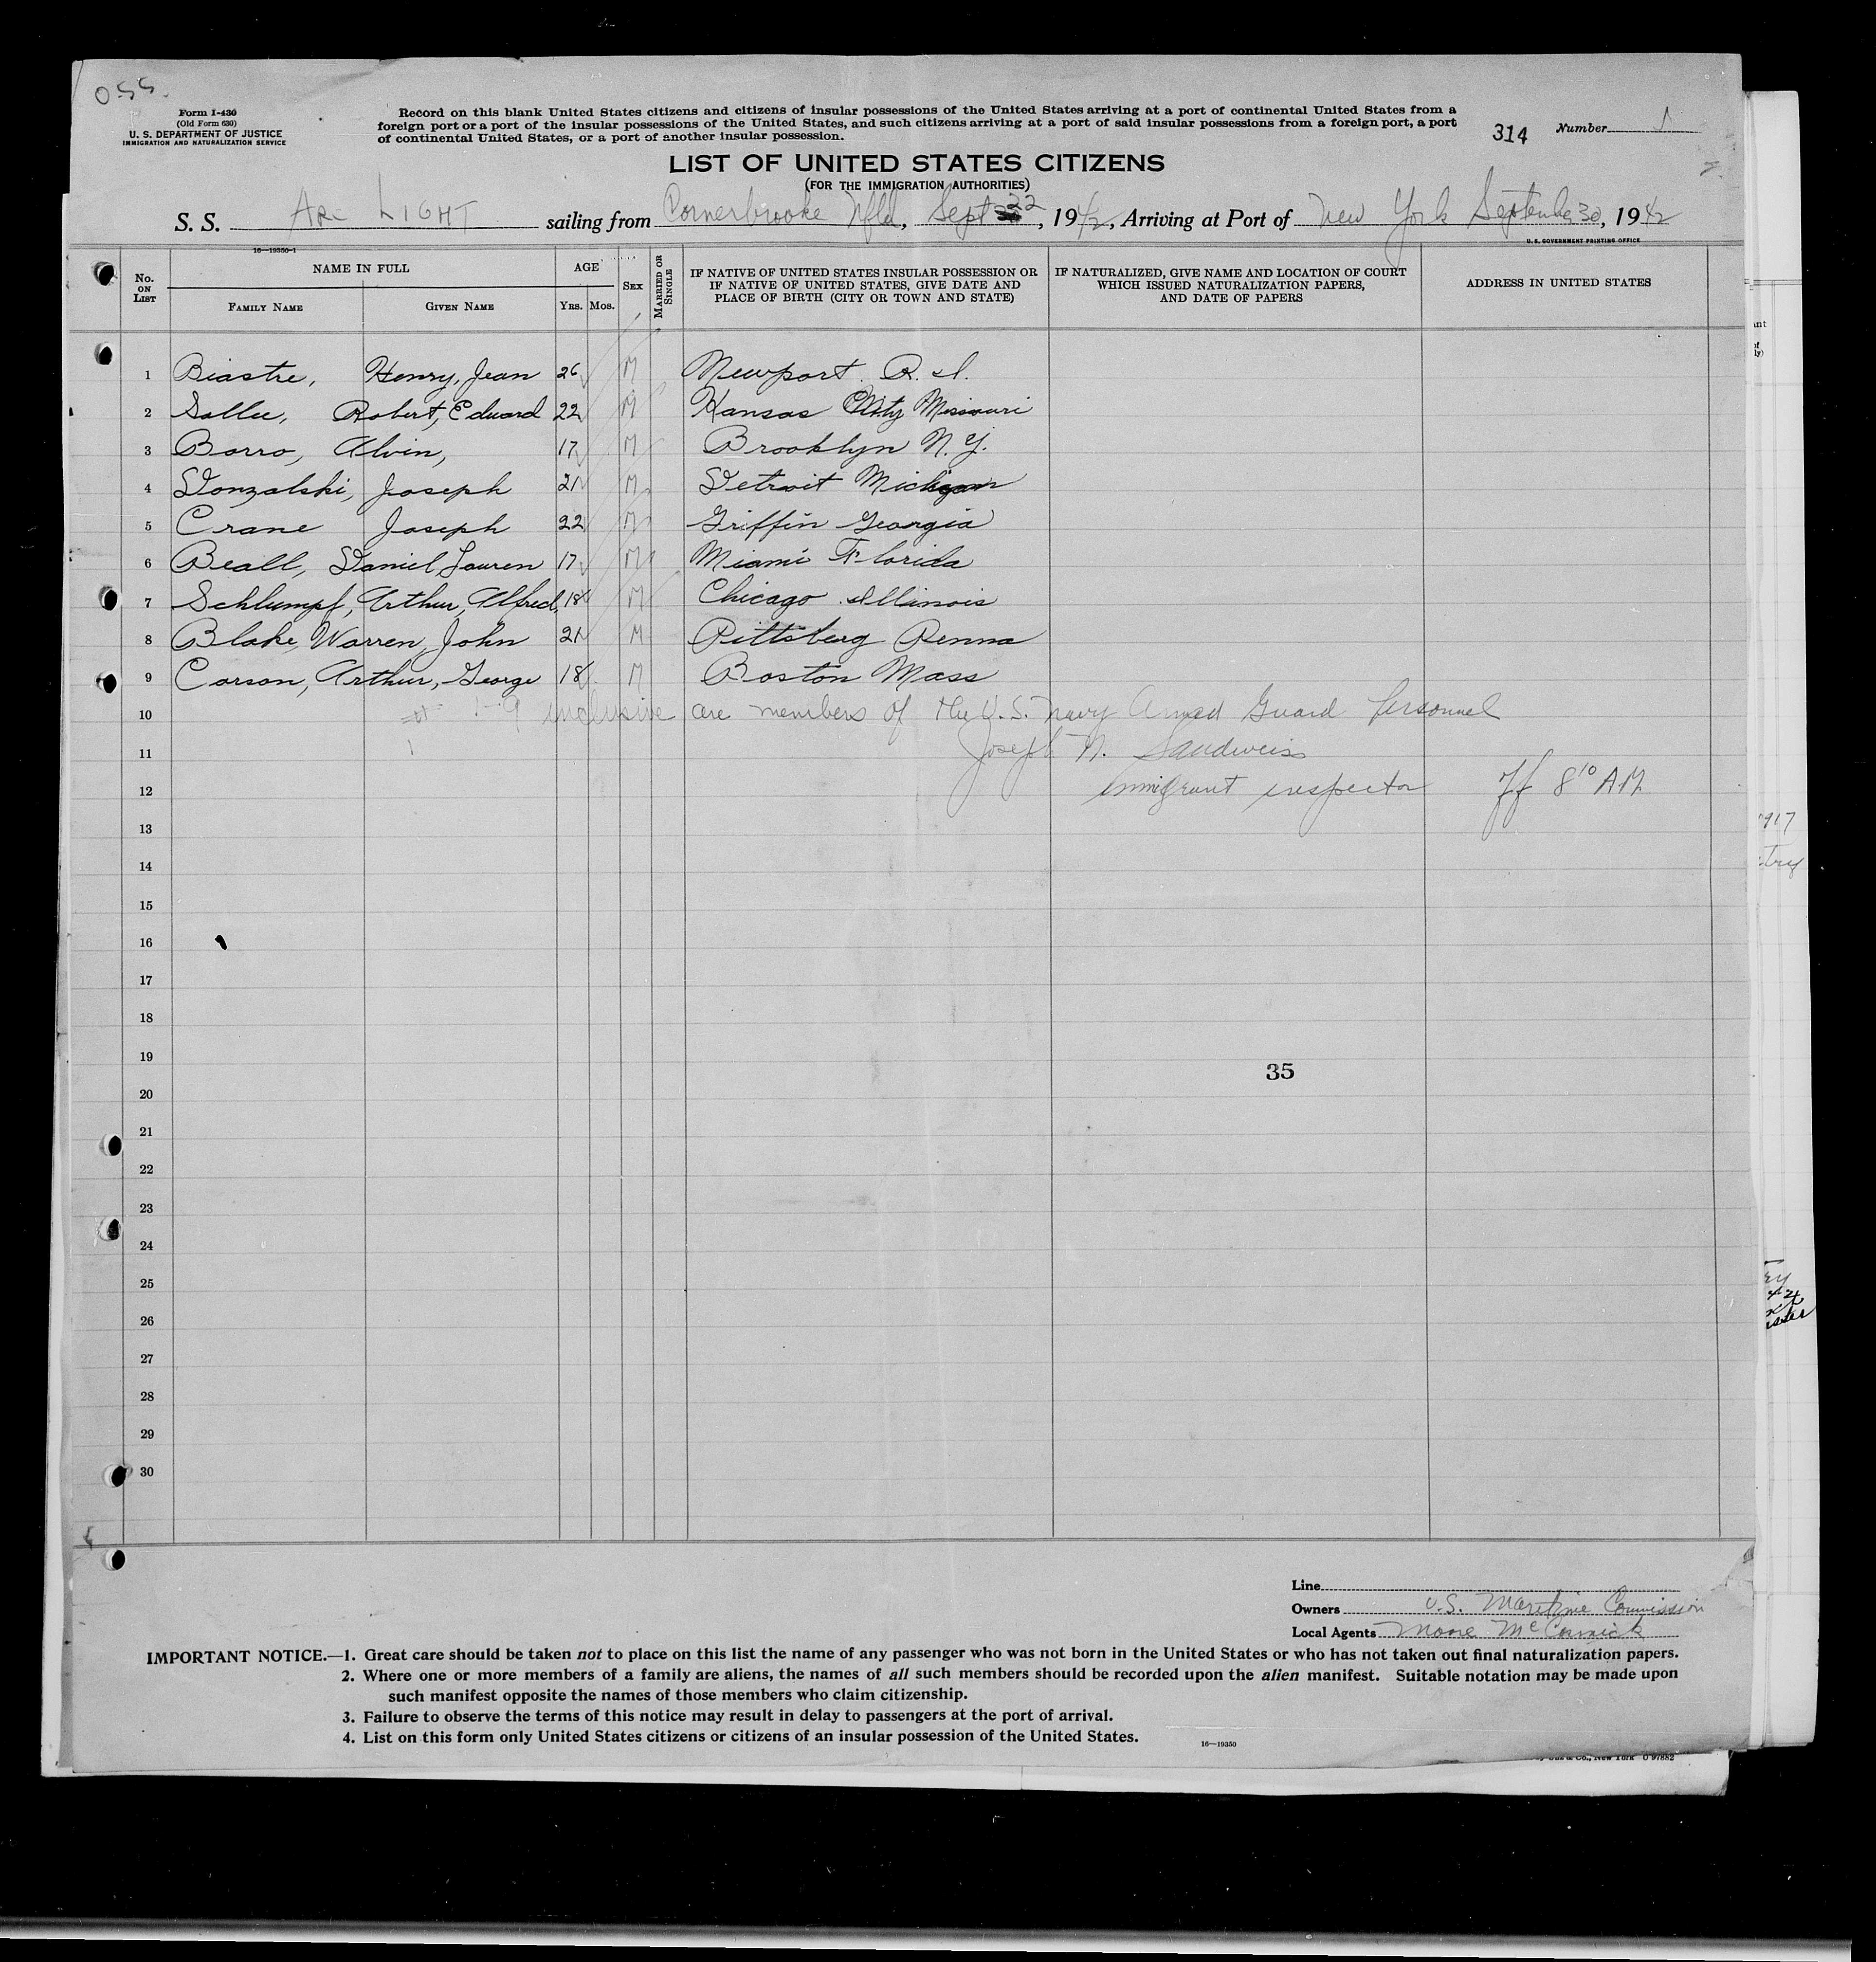 O.S.S.
Form I-430
(Old Form 630)
U. S. DEPARTMENT OF JUSTICE
IMMIGRATION AND NATURALIZATION SERVICE
Record on this blank United States citizens and citizens of insular possessions of the United States arriving at a port of continental United States from a
foreign port or a port of the insular possessions of the United States, and such citizens arriving at a port of said insular possessions from a foreign port, a port
of continental United States, or a port of another insular possession.
314 Number 1
LIST OF UNITED STATES CITIZENS
(FOR THE IMMIGRATION AUTHORITIES)
S. S. Arc LIGHT sailing from Cornerbrooke Nfld, Sept 22, 1942, Arriving at Port of New York September 30, 1942
16—19350-1 U. S. GOVERNMENT PRINTING OFFICE
No. ON LIST NAME IN FULL FAMILY NAME GIVEN NAME AGE YRS. MOS. SEX MARRIED OR SINGLE IF NATIVE OF UNITED STATES INSULAR POSSESSION OR IF NATIVE OF UNITED STATES, GIVE DATE AND PLACE OF BIRTH (CITY OR TOWN AND STATE) IF NATURALIZED, GIVE NAME AND LOCATION OF COURT WHICH ISSUED NATURALIZATION PAPERS, AND DATE OF PAPERS ADDRESS IN UNITED STATES
1 Biastre, Henry, Jean 26 M Newport R. I.
2 Sallee, Robert, Edward 22 M Kansas City Missouri
3 Borro, Alvin, 17 M Brooklyn N. Y.
4 Donzalski, Joseph 21 M Detroit Michigan
5 Crane Joseph 22 M Griffin Georgia
6 Beall, Daniel Lauren 17 M Miami Florida
7 Schlumpf, Arthur, Alfred, 18 M Chicago Illinois
8 Blake, Warren, John 21 M Pittsberg Penna
9 Carson, Arthur, George 18 M Boston Mass
10 # 1-9 inclusive are members of the U.S. Navy Armed Guard Personnel
11 Joseph N. Sandweiss
12 Immigrant inspector 8 10 AM
13
14
15
16
17
18
19
35
20
21
22
23
24
25
26
27
28
29
30
Line
Owners U.S. Maritime Commission
Local Agents Moore McCormick
IMPORTANT NOTICE.—1. Great care should be taken not to place on this list the name of any passenger who was not born in the United States or who has not taken out final naturalization papers.
2. Where one or more members of a family are aliens, the names of all such members should be recorded upon the alien manifest. Suitable notation may be made upon
such manifest opposite the names of those members who claim citizenship.
3. Failure to observe the terms of this notice may result in delay to passengers at the port of arrival.
4. List on this form only United States citizens or citizens of an insular possession of the United States.
16—19350